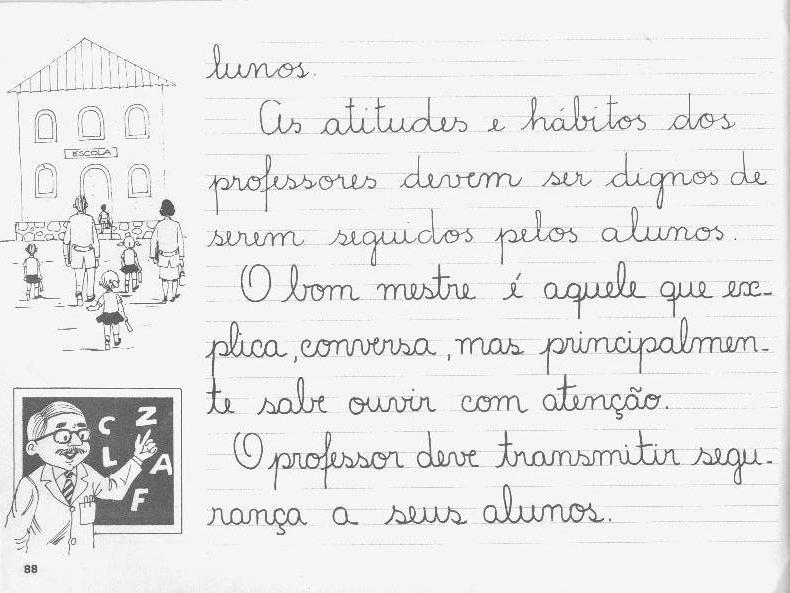 lunos.
As atitudes e hábitos dos
professores devem ser dignos de
serem seguidos pelos alunos.
O bom mestre é aquele que ex-
plica, conversa, mas principalmen-
te sabe ouvir com atenção.
O professor deve transmitir segu-
rança a seus alunos.
ESCOLA
C Z
L A
F
88